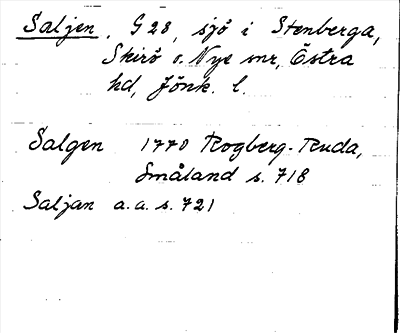 Saljen, G 28, sjö i Stenberga,
Skirö o. Nye snr, Östra
hd, Jönk. l.
Salgen 1770 Rogberg-Ruda,
Småland s. 718
Saljan a.a. s. 721